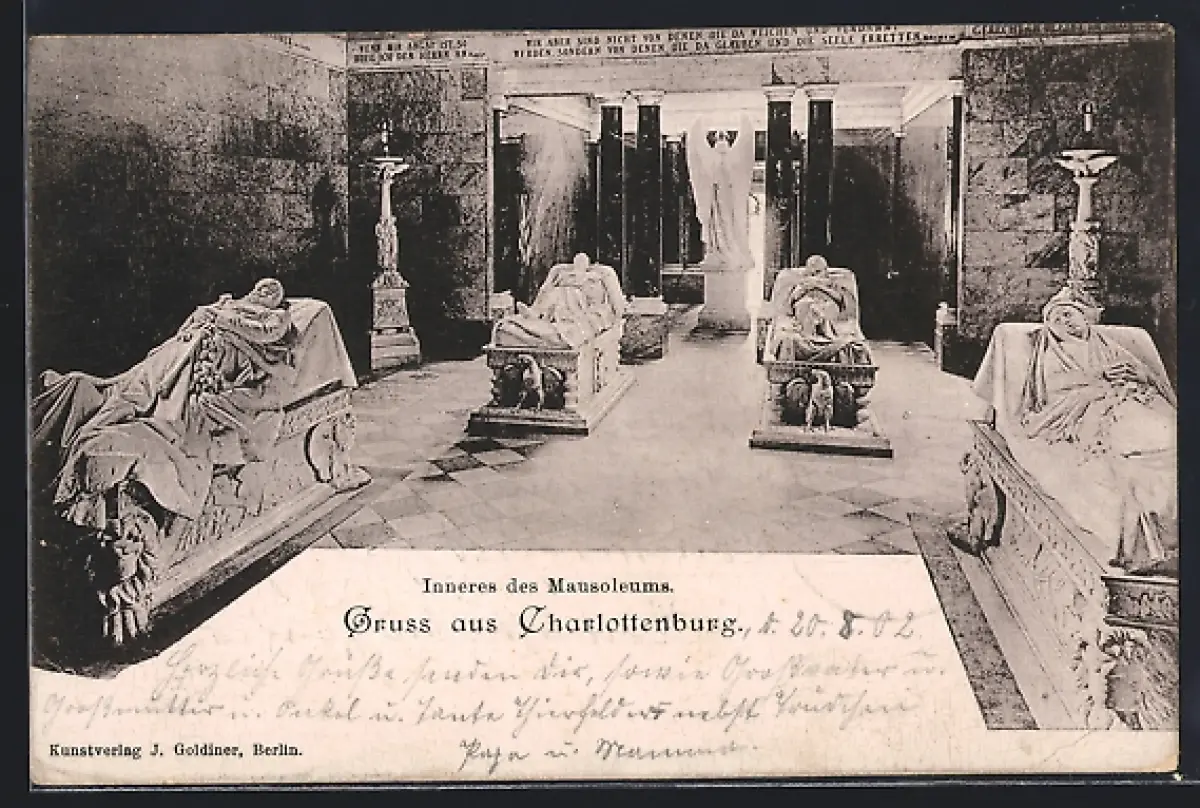 WENN MIR ANGST IST, SO
RUFE ICH DEN HERRN AN
WIR ABER SIND NICHT VON DENEN DIE DA WEICHEN UND VERDAMMT
WERDEN, SONDERN VON DENEN DIE DA GLAUBEN UND DIE SEELE ERRETTEN
Inneres des Mausoleums.
Gruss aus Charlottenburg., d. 20. 8. 02.
Herzliche Grüße senden Dir, sowie Großvater u.
Großmutter u. Onkel u. Tante Thierfelder nebst Trudchen
Papa u. Mamma.
Kunstverlag J. Goldiner, Berlin.